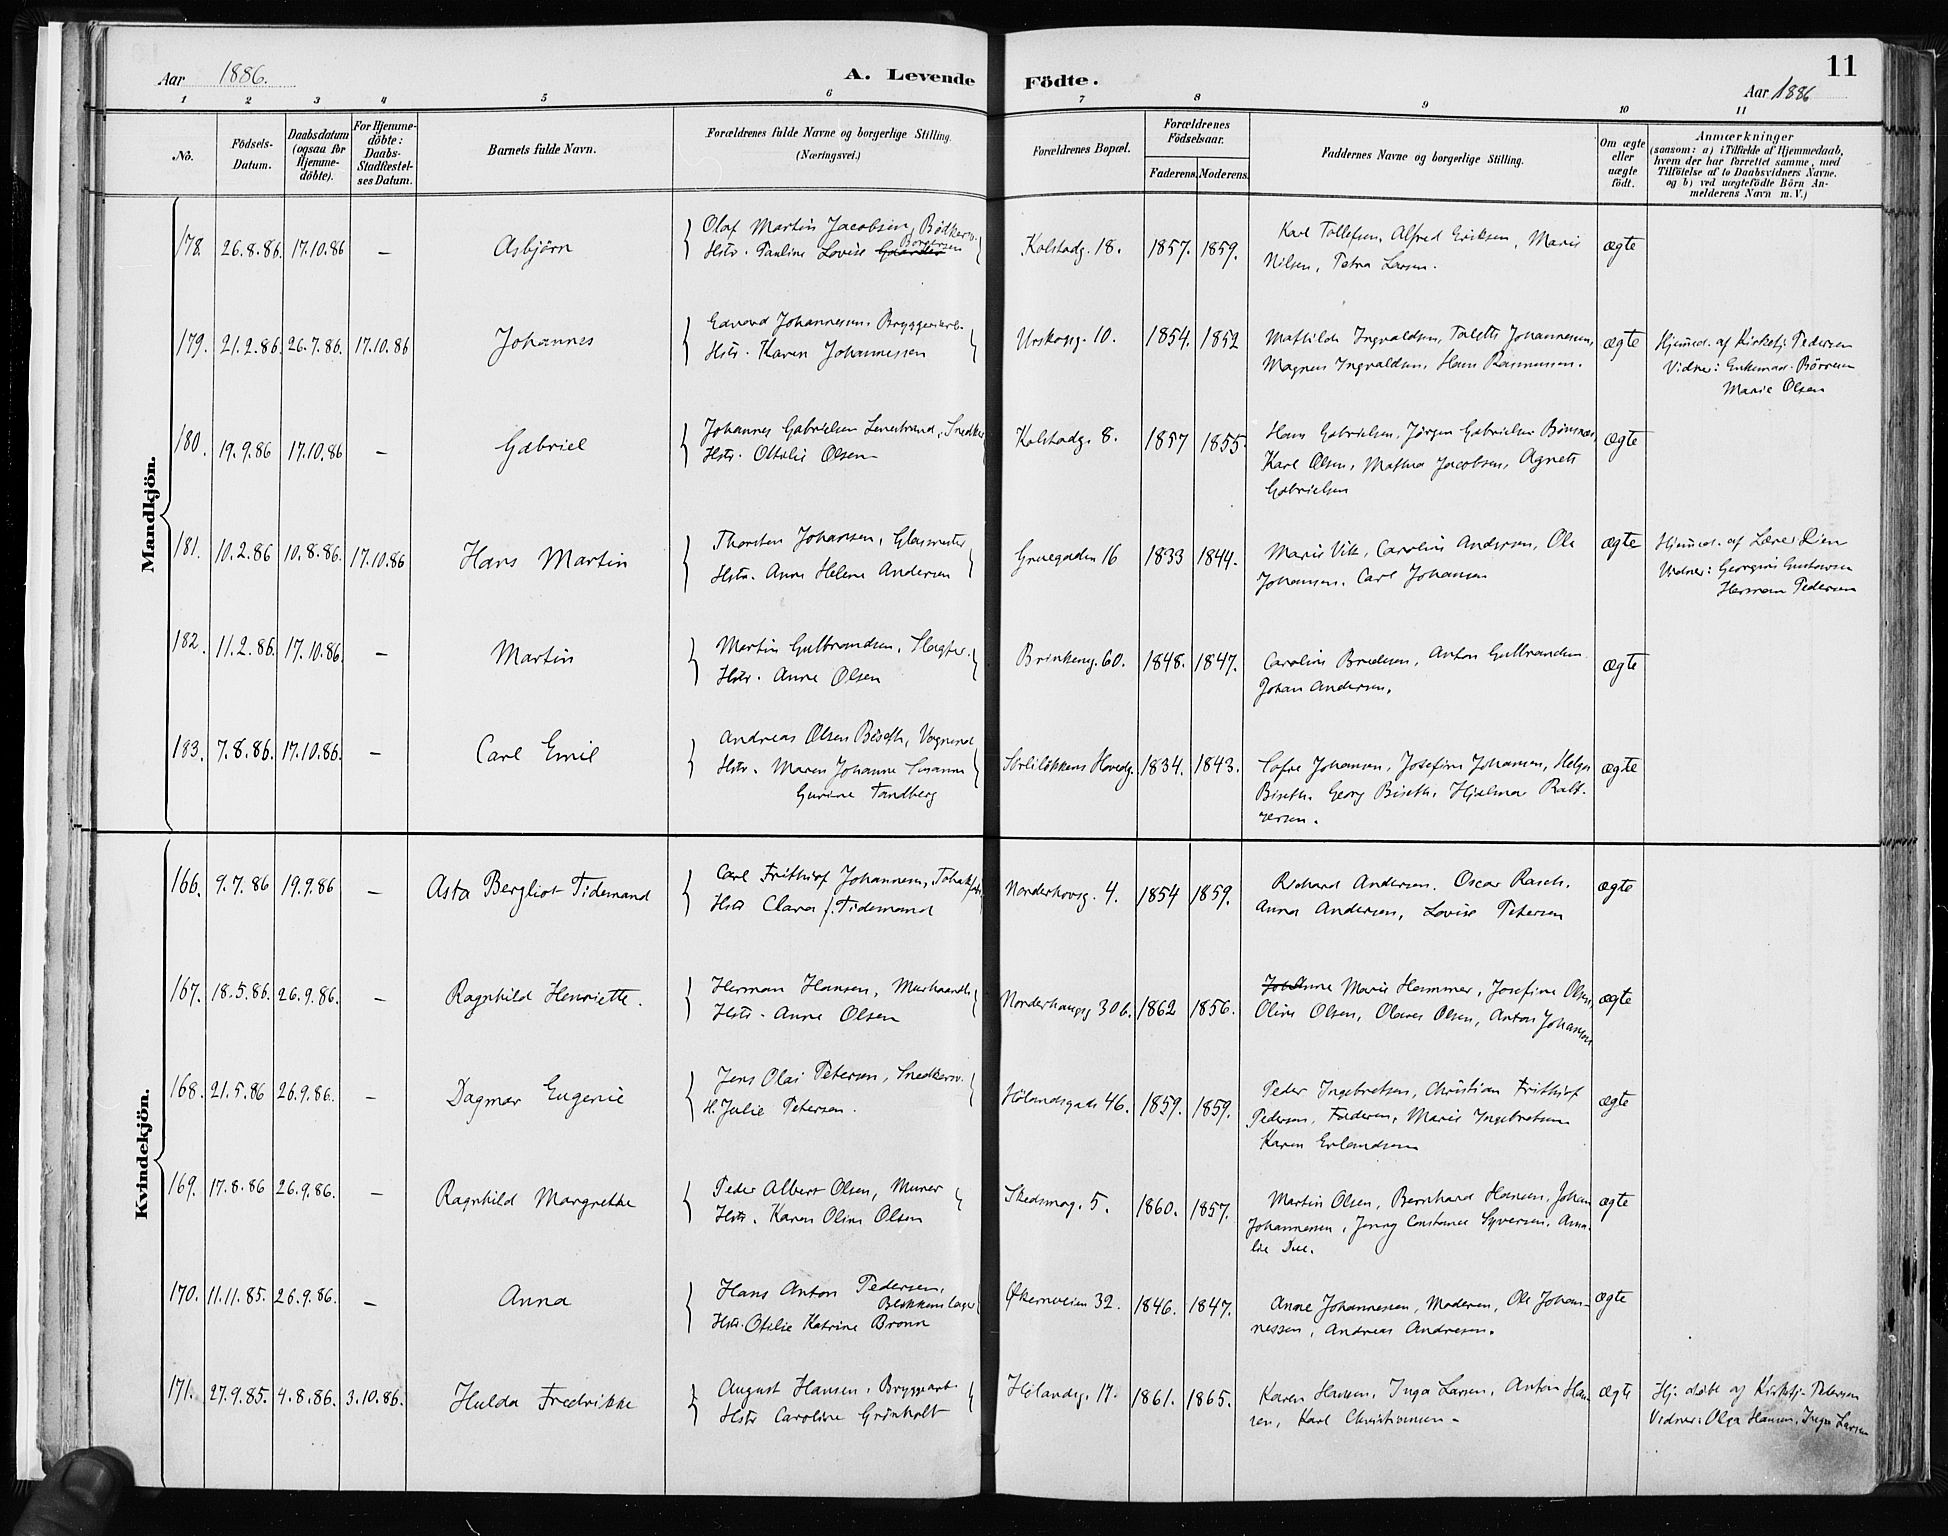 Aar 1886.
A. Levende Födte.
11
Aar 1886
1 2 3 4 5 6 7 8 9 10 11
No.
Födsels-
Datum.
Daabsdatum
(ogsaa for
Hjemme-
döbte).
For Hjemme-
döbte:
Daabs-
Stadfæstel-
ses Datum.
Barnets fulde Navn.
Forældrenes fulde Navne og borgerlige Stilling.
(Næringsvei.)
Forældrenes Bopæl.
Forældrenes
Födselsaar.
Faderens. Moderens.
Faddernes Navne og borgerlige Stilling.
Om ægte
eller
uægte
födt.
Anmærkninger
(saasom: a) i Tilfælde af Hjemmedaab,
hvem der har forrettet samme, med
Tilföielse af to Daabsvidners Navne.
og b) ved uægtefödte Börn An-
melderens Navn m. V.)
Mandkjön.
178. 26.8.86. 17.10.86 — Asbjörn
Olaf Martin Jacobsen, Bödkersv.
Hstr. Pauline Lovise Borgersen
Kolstadg. 18. 1857. 1859.
Karl Tollefsen, Alfred Eriksen, Marie
Nilsen, Petra Larsen.
ægte
179. 21.2.86 26.7.86. 17.10.86 Johannes
Edvard Johannessen, Bryggeriarb.
Hstr. Karen Johannessen
Urskogg. 10. 1854. 1852
Mathilde Ingvaldsen, Johannesen,
Magnus Ingvaldsen, Hans Rasmussen.
ægte
Hjemmd. af Kirkesj. Pedersen
Vidner: Enkemad. Börresen
Marie Olsen
180. 19.9.86 17.10.86 — Gabriel
Johannes Gabrielsen, Snedker
Hstr. Ottilie Olsen
Kolstadg. 8. 1857 1855
Hans Gabrielsen, Jörgen Gabrielsen Bönsnæs,
Karl Olsen, Mathea Jacobsen, Agnete
Gabrielsen
ægte
181. 10.2.86 10.8.86. 17.10.86 Hans Martin
Thorsten Johansen, Glasmester
Hstr. Anne Helene Andersen
Gruegaden 16 1833 1844.
Marie Vik, Caroline Andersen, Ole
Johansen, Carl Johansen
ægte
Hjemmd. af Lærer Lien
Vidner: Georgine Gustavsen
Herman Pedersen
182. 11.2.86. 17.10.86. — Martin
Martin Gulbrandsen, Slagter.
Hstr. Anne Olsen
Brinkeng. 60. 1848. 1847.
Caroline Bredesen, Anton Gulbrandsen
Johan Andersen.
ægte
183. 7.8.86. 17.10.86. — Carl Emil
Andreas Olsen Biseth, Vognmd
Hstr. Maren Johanne Susanne
Gurine Tandberg
Sorliløkkens Hovedg. 1834. 1843.
Sofie Johansen, Josefine Johansen, Helga
Biseth, Georg Biseth, Hjalmar
ægte
Kvindekjön.
166. 9.7.86 19.9.86 — Asta Bergliot Tidemand
Carl Frithjof Johannesen,
Hstr Clara f. Tidemand
Nonderhovsg. 4. 1854 1859.
Richard Andersen, Oscar Rasch,
Anna Andersen, Lovise Petersen
ægte
167. 18.5.86. 26.9.86. — Ragnhild Henriette.
Herman Hansen, Murhaandl.
Hstr. Anne Olsen
Nonderhougsg 30 b. 1862 1856.
Anne Marie Hammer, Josefine Olsen,
Oline Olsen, Olaves Olsen, Anton Johansen
ægte
168. 21.5.86 26.9.86. — Dagmar Eugenie
Jens Olai Petersen, Snedkersv.
H. Julie Petersen.
Hölandsgade 46. 1859. 1859.
Peder Ingebretsen, Christian Frithjof
Pedersen, Faderen, Marie Ingebretsen
Karen Erlandsen
ægte
169. 17.8.86 26.9.86. — Ragnhild Margrethe
Peder Albert Olsen, Murer
Hstr. Karen Oline Olsen
Skedsmog. 5. 1860. 1857.
Martin Olsen, Bernhard Hansen, Johan
Johannessen, Jenny Constance Syversen, Ama-
lie Due.
ægte
170. 11.11.85. 26.9.86. — Anna
Hans Anton Pedersen,
Blokkemager
Hstr. Otilie Katrine Bronn
Økernveien 32. 1846. 1847.
Anne Johannessen, Moderen, Ole Johan-
nessen, Andreas Andresen.
ægte
171. 27.9.85. 4.8.86. 3.10.86. Hulda Fredrikke
August Hansen, Bryggearb
Hstr Caroline Grönholt
Hölandsg. 17. 1861. 1865.
Karen Hansen, Inga Larsen, Anton Han-
sen, Karl Christiansen —
ægte
Hj. döbt af Kirkesj. Petersen
Vidner: Olga Hansen, Inga Larsen